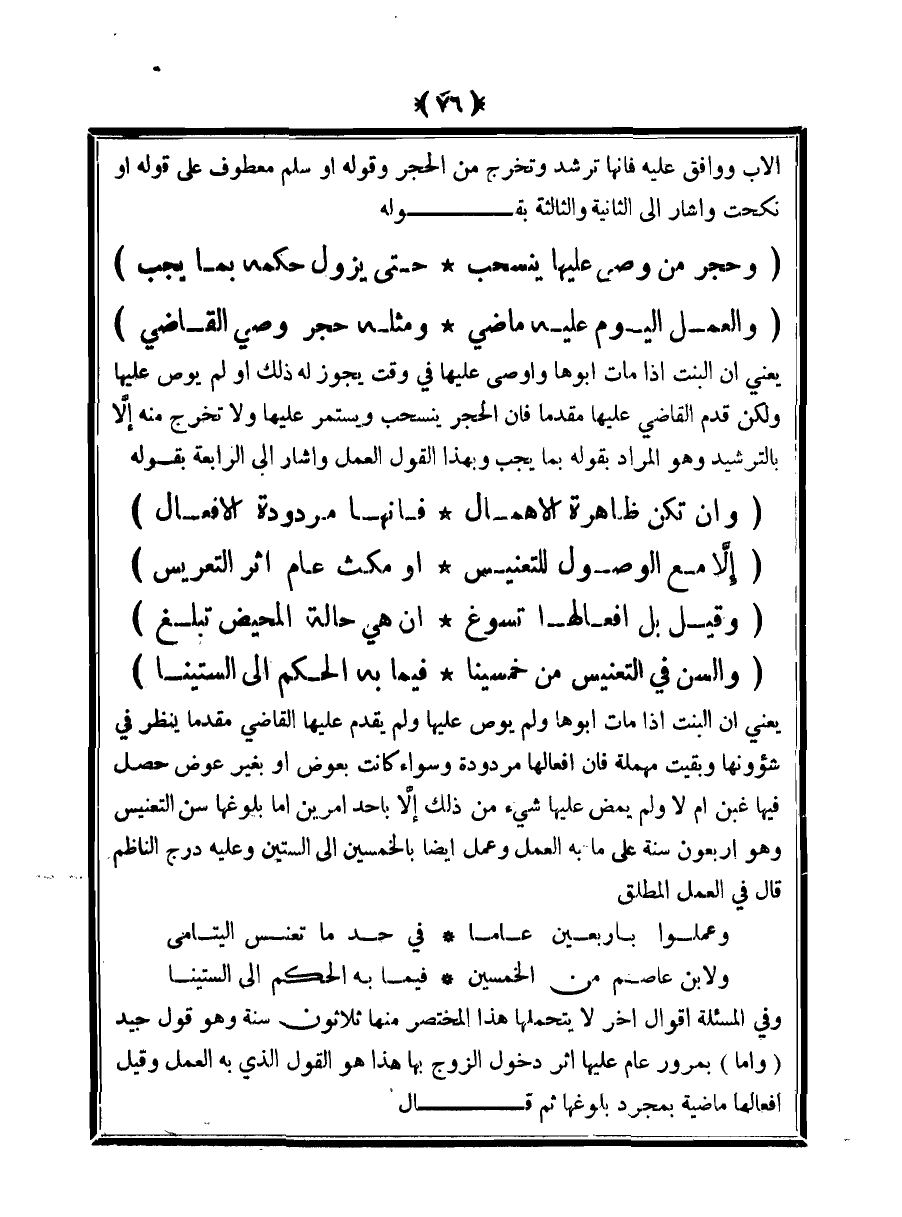 ﴿٧٦﴾
الاب ووافق عليه فانها ترشد وتخرج من الحجر وقوله او سلم معطوف على قوله او
نكحت واشار الى الثانية والثالثة بقـــــوله
( وحجر من وصي عليها ينسحب * حـتى يزول حكمه بمـا يجب )
( والعمـل اليـوم عليـه ماضي * ومثلـه حجر وصي القـاضي )
يعني ان البنت اذا مات ابوها واوصى عليها في وقت يجوز له ذلك او لم يوص عليها
ولكن قدم القاضي عليها مقدما فان الحجر ينسحب ويستمر عليها ولا تخرج منه إلَّا
بالترشيد وهو المراد بقوله بما يجب وبهذا القول العمل واشار الى الرابعة بقـوله
( وان تكن ظاهرة الاهمـال * فـانهـا مردودة الافعـال )
( إلَّا مـع الوصـول للتعنيـس * او مكث عام اثر التعريس )
( وقيـل بل افعـالهـا تسوغ * ان هي حالة المحيض تبلـغ )
( والسن في التعنيس من خمسينا * فيما به الحـكم الى الستينـا )
يعني ان البنت اذا مات ابوها ولم يوص عليها ولم يقدم عليها القاضي مقدما ينظر في
شؤونها وبقيت مهملة فان افعالها مردودة وسواء كانت بعوض او بغير عوض حصل
فيها غبن ام لا ولم يمض عليها شيء من ذلك إلَّا باحد امرين اما بلوغها سن التعنيس
وهو اربعون سنة على ما به العمل وعمل ايضا بالخمسين الى الستين وعليه درج الناظم
قال في العمل المطلق
وعملـوا بـاربعـين عـامـا * في حـد ما تعنـس اليتـامى
ولابن عاصـم من الخمسين * فيمـا به الحكم الى الستينـا
وفي المسئلة اقوال اخر لا يتحملها هذا المختصر منها ثلاثون سنة وهو قول جيد
( واما ) بمرور عام عليها اثر دخول الزوج بها هذا هو القول الذي به العمل وقيل
افعالها ماضية بمجرد بلوغها ثم قـــــال